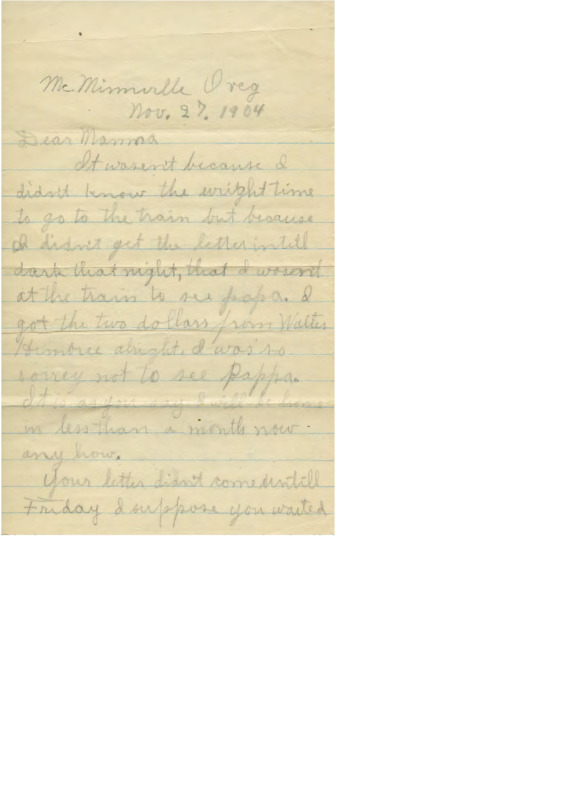 Mc Minnville Oreg
Nov. 27. 1904
Dear Mamma
It wasen't because I
didn't know the wright time
to go to the train but because
I didn't get the letter intill
dark that night, that I wosent
at the train to see papa. I
got the two dollars from Walter
alright. I was so
sorrey not to see Pappa.
It is as you say I will be home
in less than a month now
any how.
Your letter didn't come untill
Friday I suppose you waited